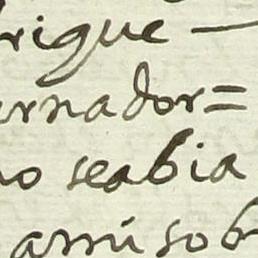 rigue —
ernador=
no seabia
amisob